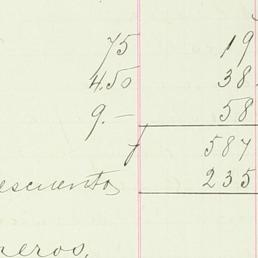 75 19
4.50 38
9.— 58
f 587
escuento 235
neros.